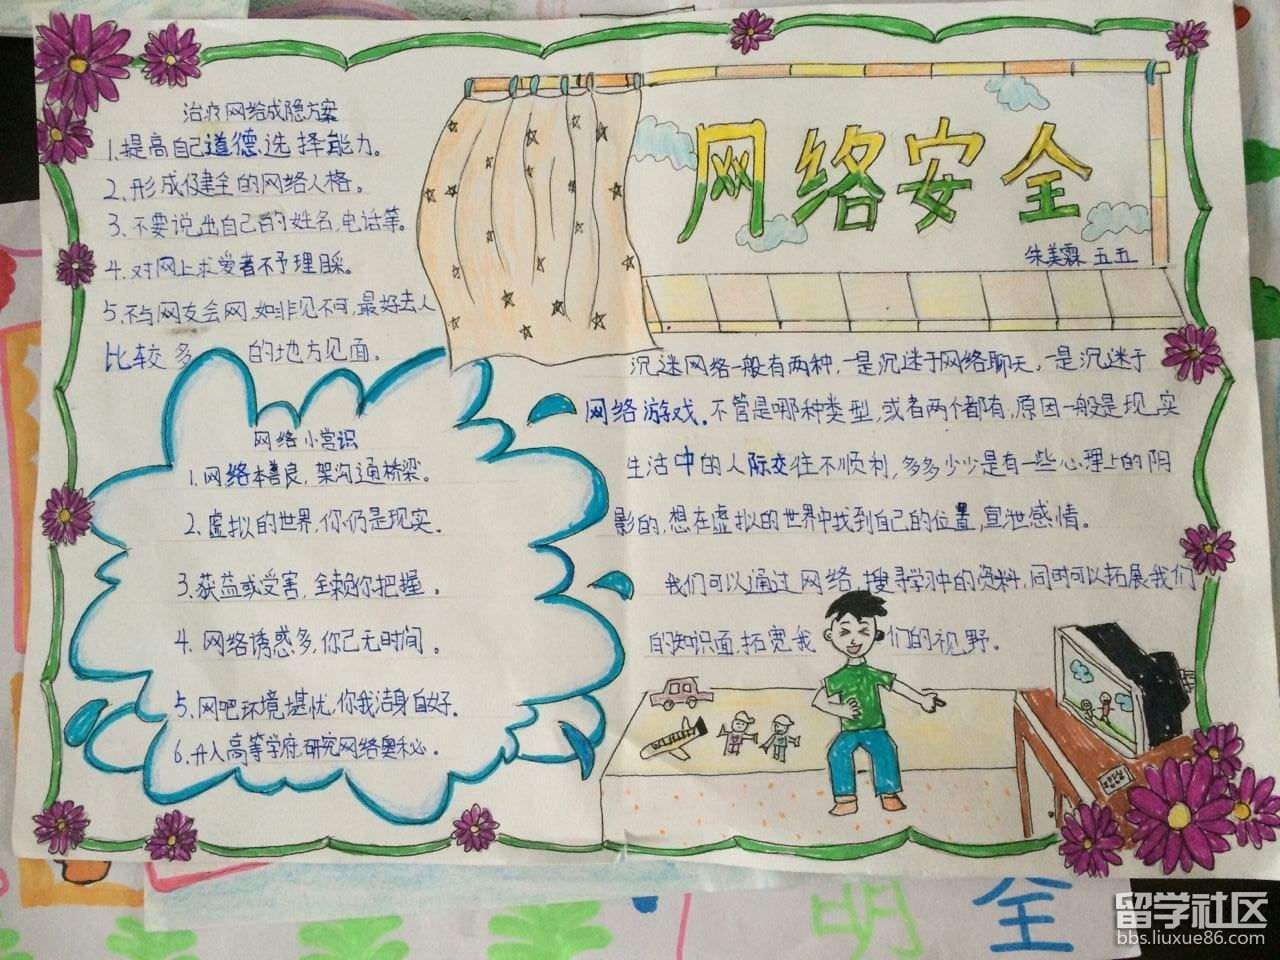 网络安全
朱美霖 五五
治疗网络成隐方案
1.提高自己道德选择能力。
2.形成健全的网络人格。
3.不要说出自己的姓名,电话等。
4.对网上求爱者不予理睬。
5.不与网友会网,如非见不可,最好去人
比较多 的地方见面。
网络小常识
1.网络本善良,架沟通桥梁。
2.虚拟的世界,你仍是现实。
3.获益或受害,全赖你把握。
4.网络诱惑多,你己无时间。
5.网吧环境堪忧,你我洁身自好。
6.升入高等学府,研究网络奥秘。
沉迷网络一般有两种,一是沉迷于网络聊天,一是沉迷于
网络游戏。不管是哪种类型,或者两个都有,原因一般是现实
生活中的人际交住不顺利,多多少少是有一些心理上的阴
影的,想在虚拟的世界中找到自己的位置,宣泄感情。
我们可以通过网络,搜寻学习中的资料,同时可以拓展我们
的知识面,拓宽我 们的视野。
明 全
留学社区
bbs.liuxue86.com